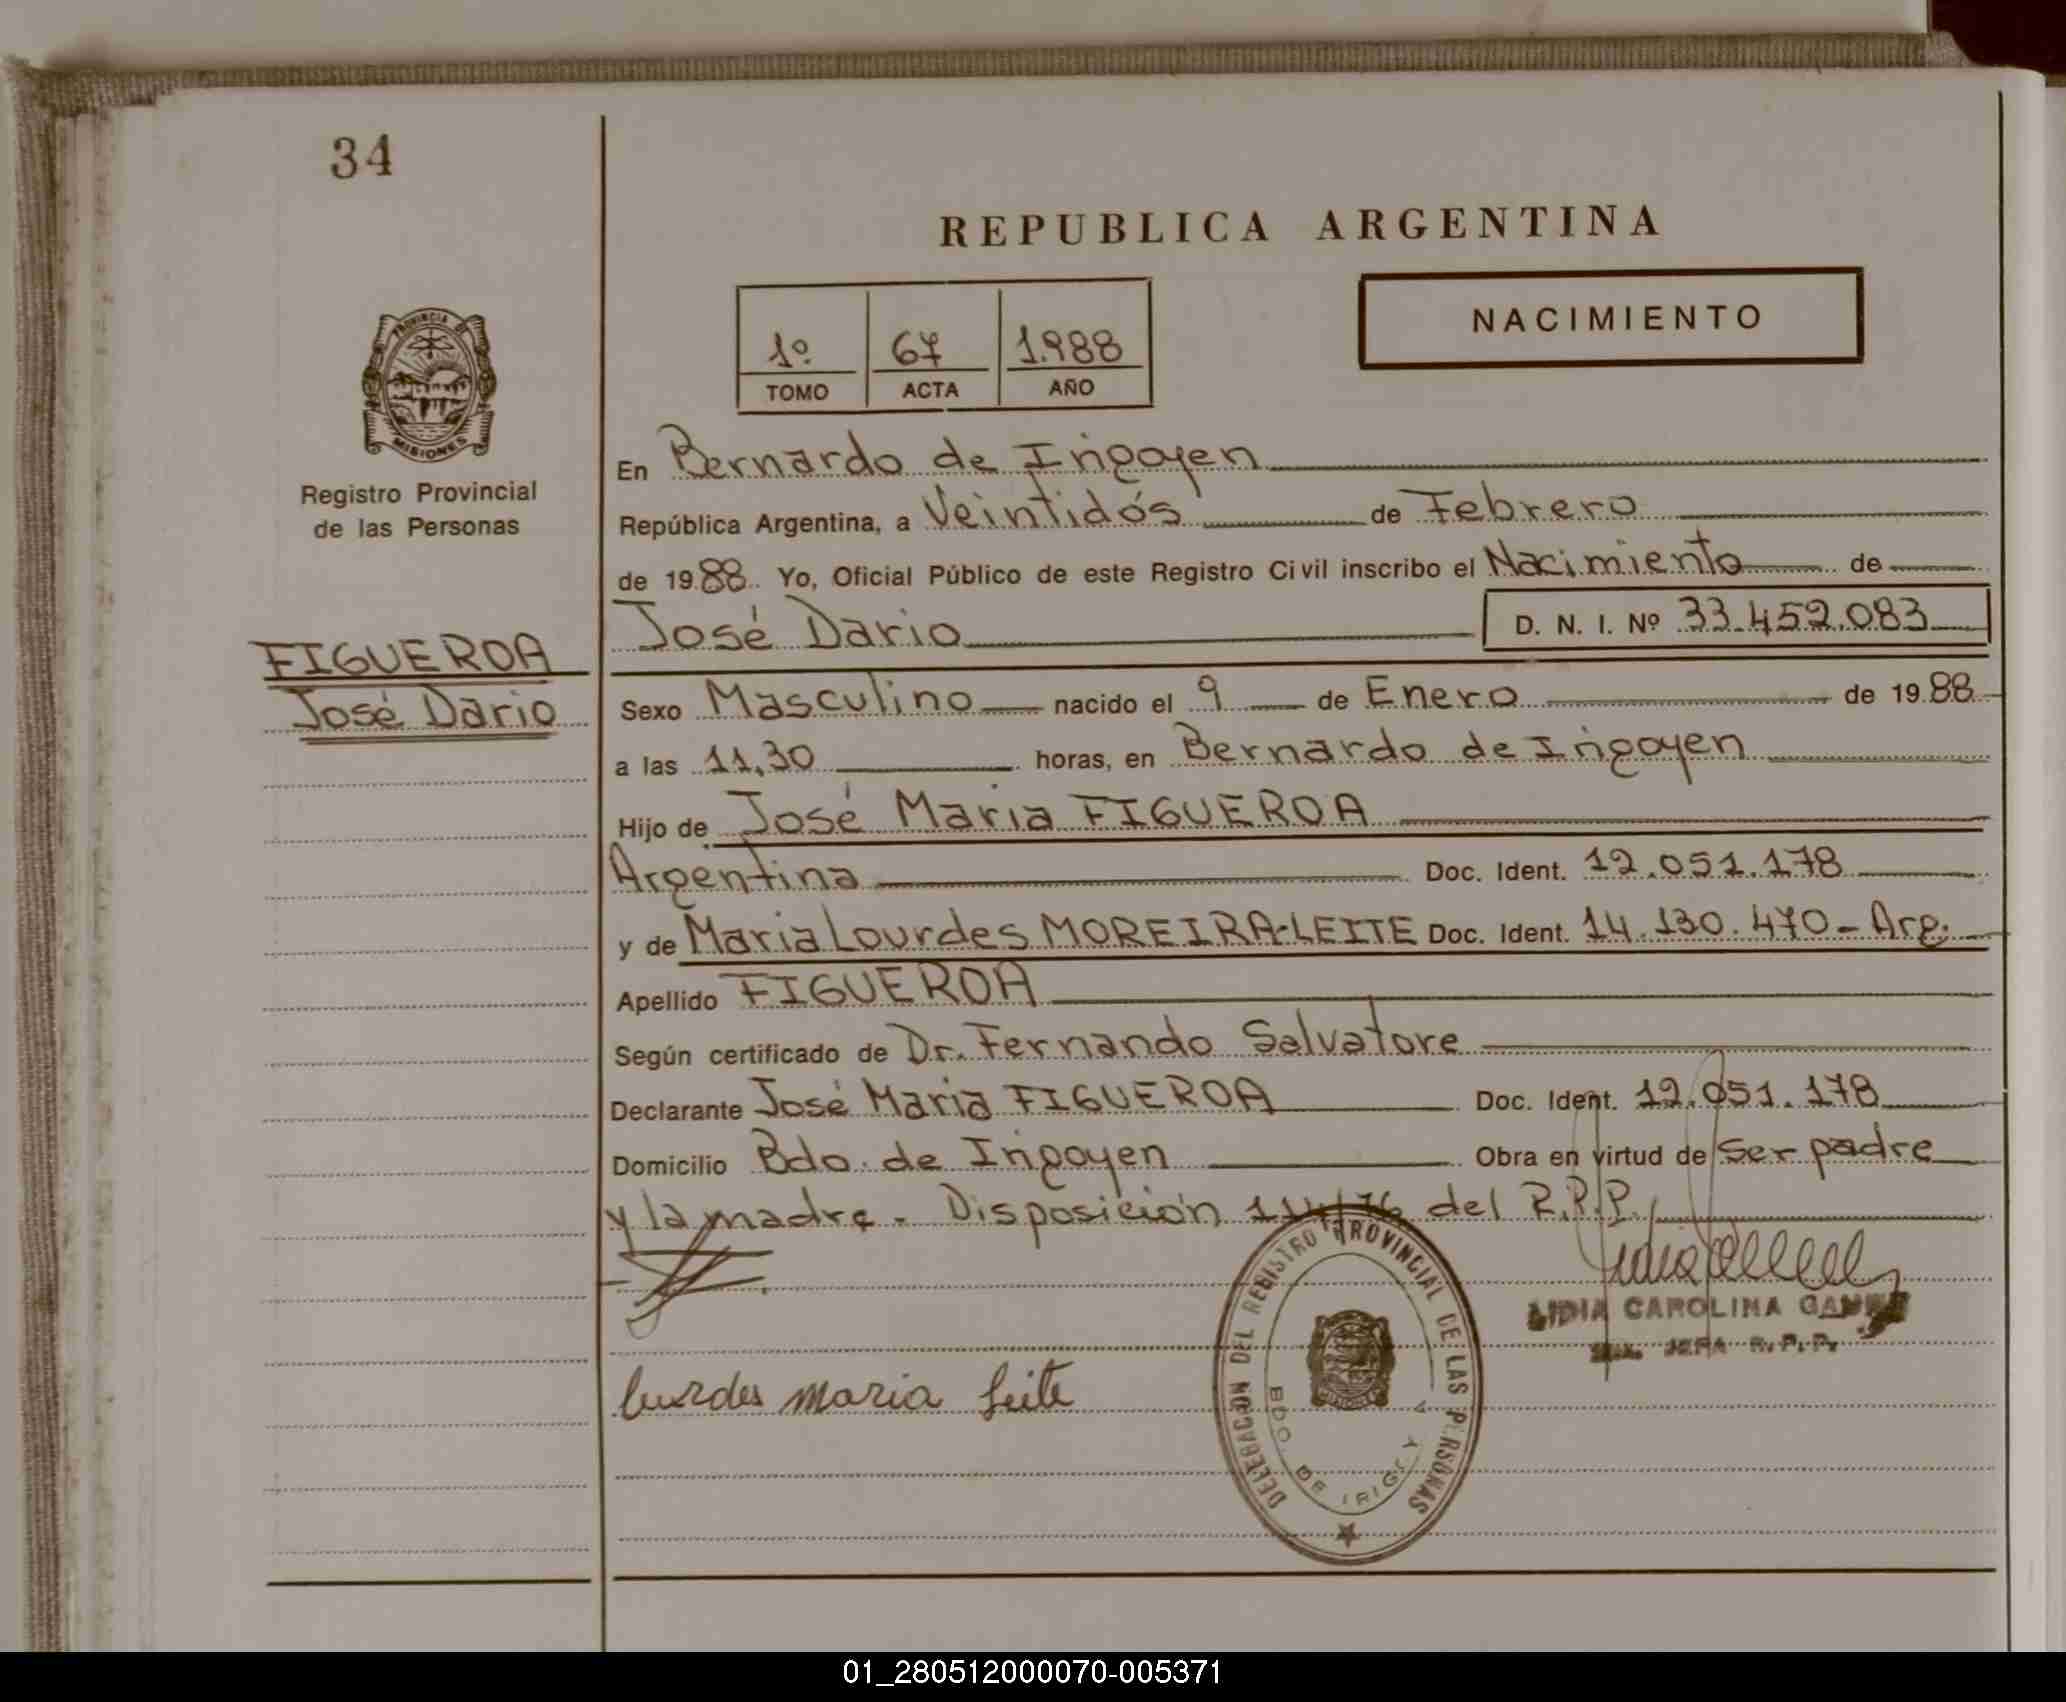 34
REPUBLICA ARGENTINA
NACIMIENTO
1º 67 1.988
TOMO ACTA AÑO
PROVINCIA DE
MISIONES
Registro Provincial
de las Personas
FIGUEROA
José Dario
En Bernardo de Irigoyen
República Argentina, a Veintidós de Febrero
de 1988. Yo, Oficial Público de este Registro Civil inscribo el Nacimiento de
José Dario D. N. I. Nº 33.452.083
Sexo Masculino nacido el 9 de Enero de 1988
a las 11,30 horas, en Bernardo de Irigoyen
Hijo de José Maria FIGUEROA
Argentina Doc. Ident. 12.051.178
y de Maria Lourdes MOREIRA-LEITE Doc. Ident. 14.130.470 - Arg.
Apellido FIGUEROA
Según certificado de Dr. Fernando Salvatore
Declarante José Maria FIGUEROA Doc. Ident. 12.051.178
Domicilio Bdo. de Irigoyen Obra en virtud de ser padre
y la madre. Disposición del R.P.P.
LIDIA CAROLINA
JEFA R.P.P.
Lurdes Maria Leite
DELEGACION DEL REGISTRO PROVINCIAL DE LAS PERSONAS
BDO. DE
01_280512000070-005371